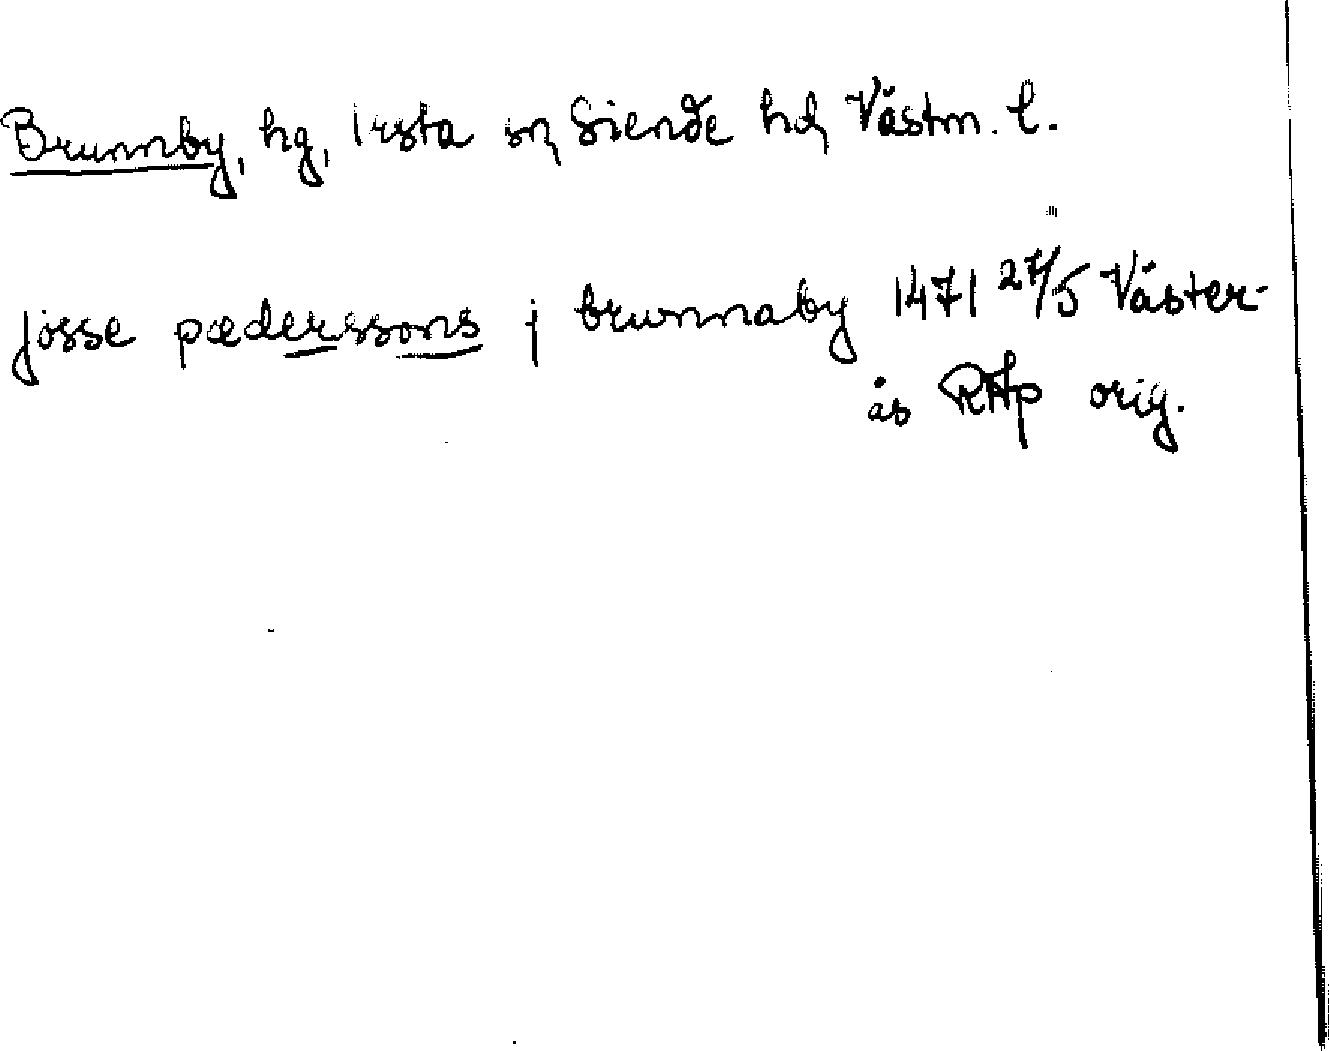 Brunnby, hg, Irsta sn Siende hd Västm. l.
jösse pæderssons j brunnaby 1471 27/5 Väster-
ås RAp orig.